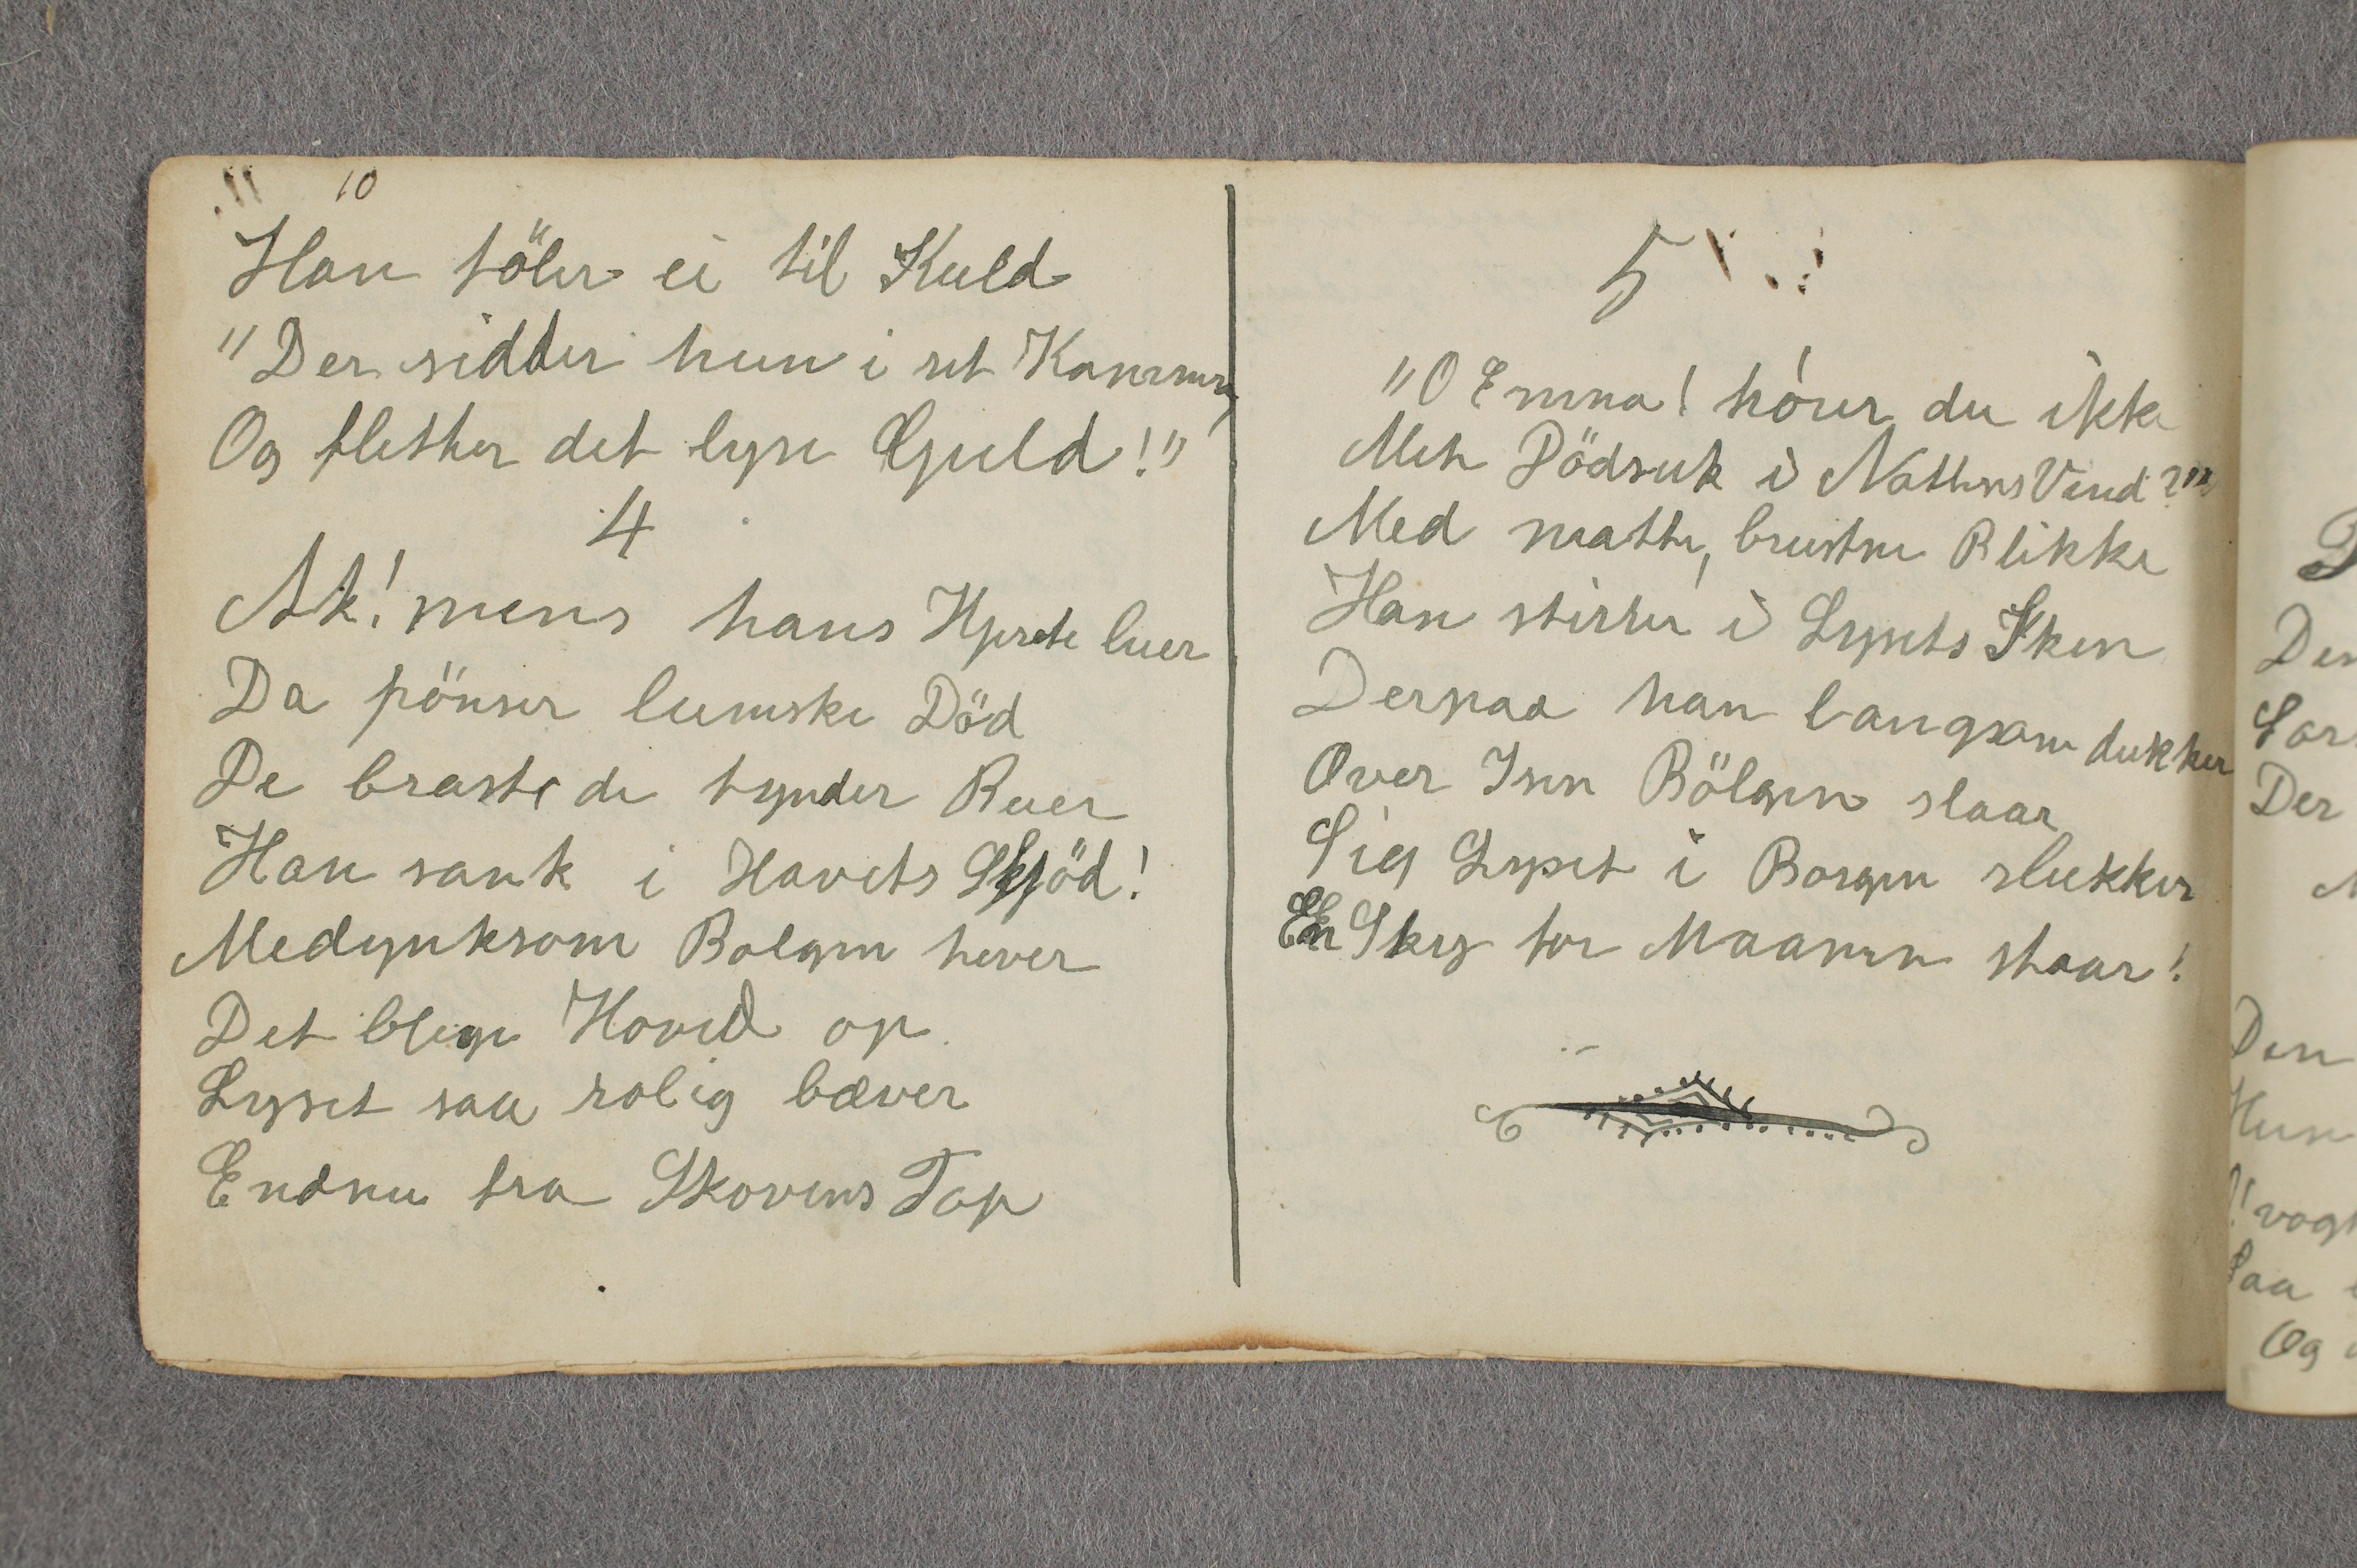 10
Han föler ei til Kuld
"Der sidder hun i sit Kammer
Og fletter det lyse Guld!"
4
Ak! mens hans Hjerte luer
Da pönser lumske Död
De braste de tynder Ruer
Han sank i Havets Skjöd!
Medynksom Bolgen hever
Det blege Hoved op
Lyset saa rolig bæver
Endnu fra Skovens Top
5
"O Emma! hörer du ikke
Mit Dödsuk i Nattens Vind?"
Med matte, brustne Blikke
Han stirrer i Lysets Sken
Derpaa han langsom dukker
Over Isen Bölgen slaar
Sig Lyset i Borgen slukker
En Sky for Maanen staar!
Den
Der
Den
Hun
Og